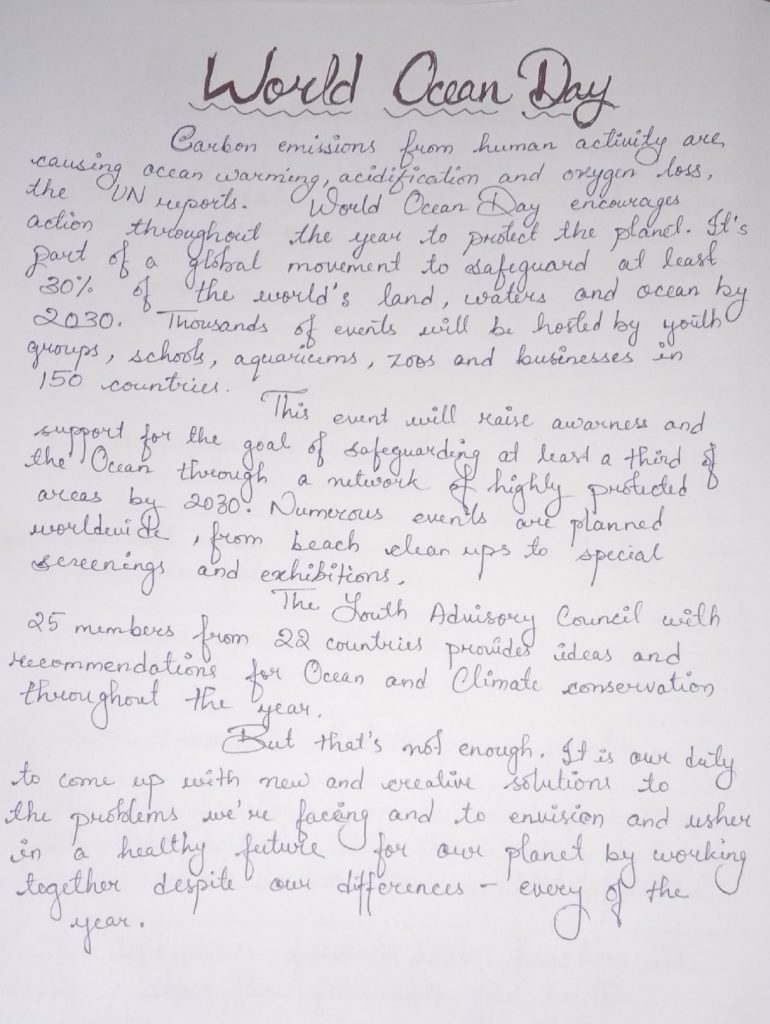 World Ocean Day
Carbon emissions from human activity are
causing ocean warming, acidification and oxygen loss,
the UN reports. World Ocean Day encourages
action throughout the year to protect the planet. It's
part of a global movement to safeguard at least
30% of the world's land, waters and ocean by
2030. Thousands of events will be hosted by youth
groups, schools, aquariums, zoos and businesses in
150 countries.
This event will raise awarness and
support for the goal of safeguarding at least a third of
the Ocean through a network of highly protected
areas by 2030. Numerous events are planned
worldwide, from beach clean ups to special
screenings and exhibitions.
The Youth Advisory Council with
25 members from 22 countries provides ideas and
recommendations for Ocean and Climate conservation
throughout the year.
But that's not enough. It is our duty
to come up with new and creative solutions to
the problems we're facing and to envision and usher
in a healthy future for our planet by working
together despite our differences - every of the
year.